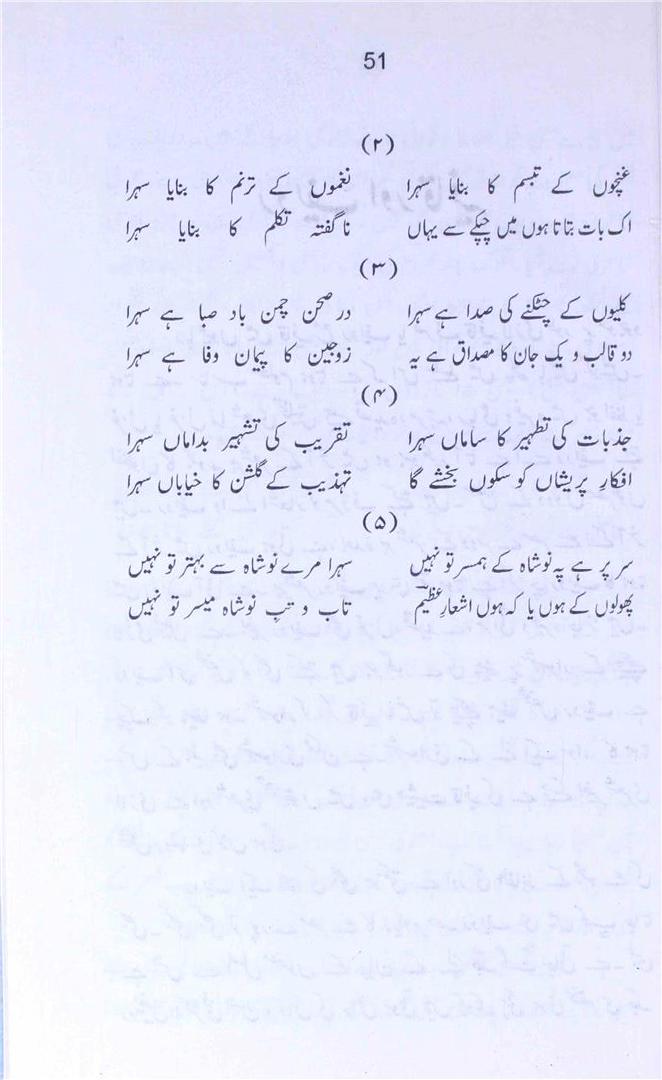 51
(۲)
غنچوں کے تبسم کا بنایا سہرا نغموں کے ترنم کا بنایا سہرا
اک بات بتاتا ہوں میں چپکے سے یہاں ناگفتہ تکلم کا بنایا سہرا
(۳)
کلیوں کے چٹکنے کی صدا ہے سہرا در صحن چمن باد صبا ہے سہرا
دو قالب و یک جان کا مصداق ہے یہ زوجین کا پیمان وفا ہے سہرا
(۴)
جذبات کی تطہیر کا ساماں سہرا تقریب کی تشہیر بداماں سہرا
افکارِ پریشاں کو سکوں بخشے گا تہذیب کے گلشن کا خیاباں سہرا
(۵)
سر پر ہے پہ نوشاہ کے ہمسر تو نہیں سہرا مرے نوشاہ سے بہتر تو نہیں
پھولوں کے ہوں یا کہ ہوں اشعارِ عظیمؔ تاب و تبِ نوشاہ میسر تو نہیں